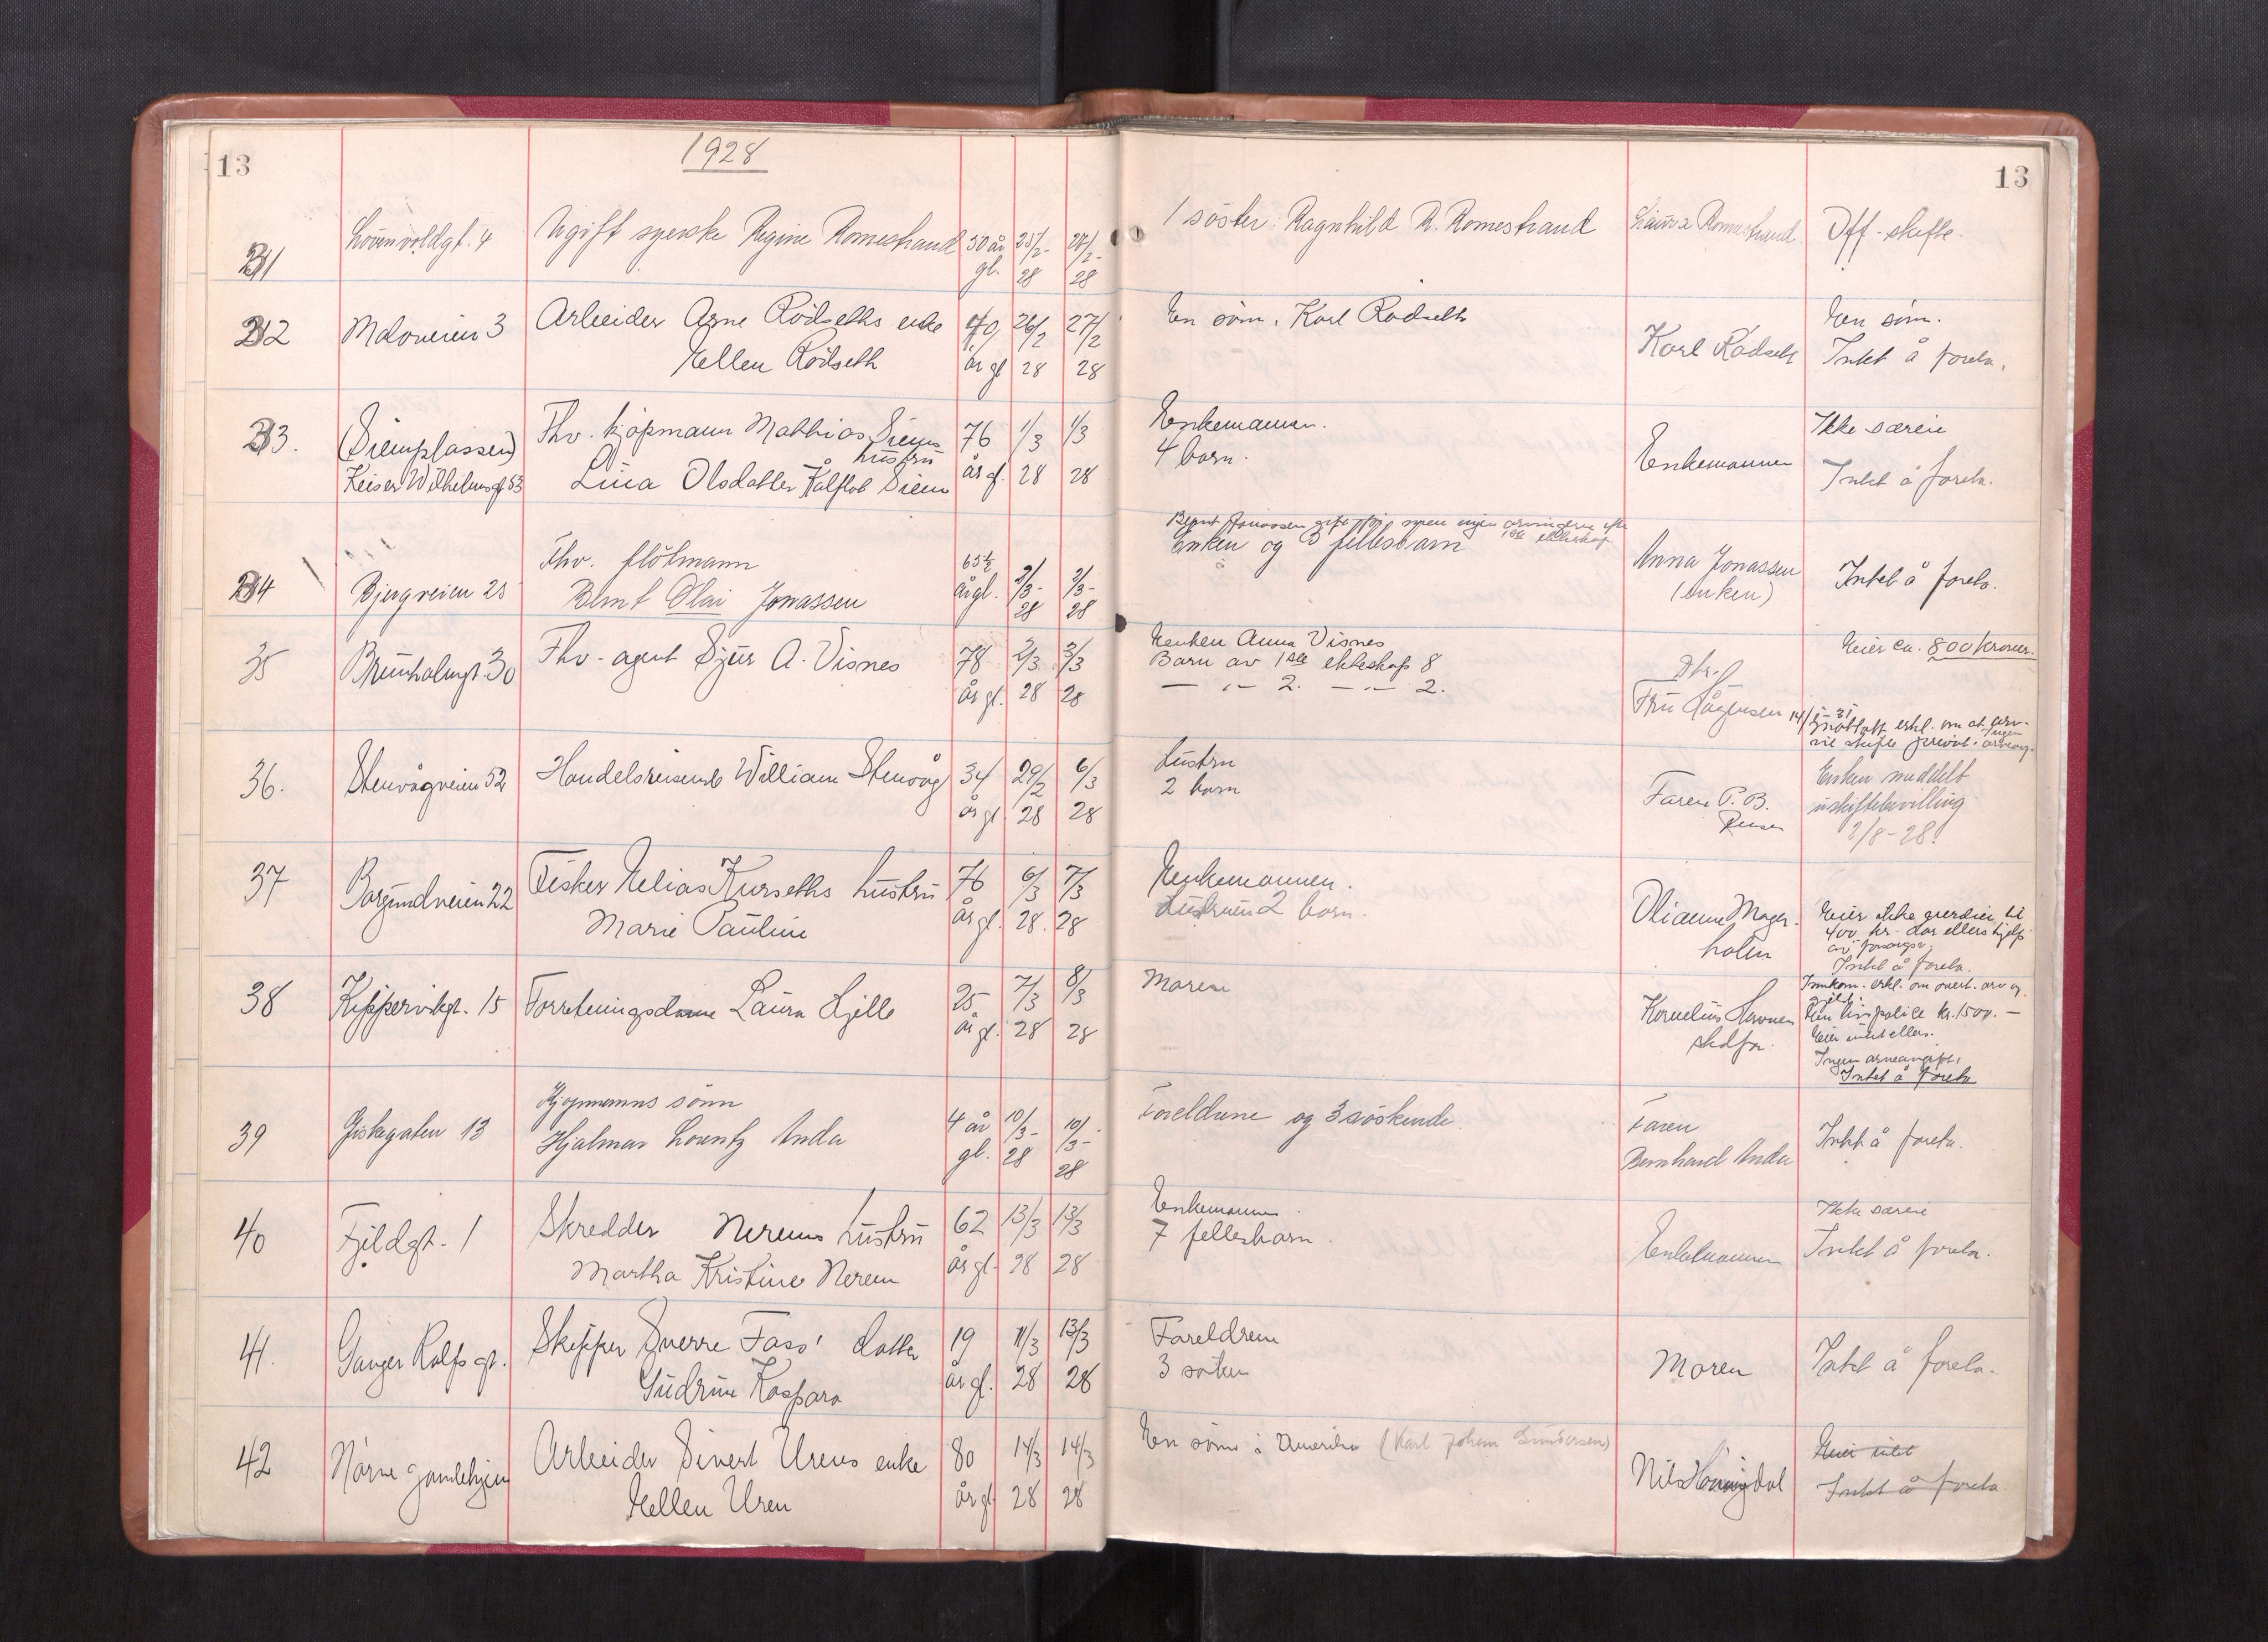 13
1928
13
31
Lövenvoldgt. 4
Ugift syerske Regine Romestrand
50 år gl.
25/2-28
28/2-28
1 söster: Ragnhild R. Romestrand
Laura Romestrand
Off. skifte.
32
Moloveien 3
Arbeider Arne Rödseths enke
Hellen Rödseth
70 år gl
26/2 28
27/2 28
En sön, Karl Rödseth
Karl Rödseth
En sön.
Intet å foreta.
33.
(Siemplassen)
Keiser Wilhelmsgt 53
Fhv. kjöpmann Mathias Siems
hustru
Lina Olsdatter Kalflot Siem
76 år gl.
1/3 28
1/3 28
Enkemannen.
4 barn.
Enkemannen
Ikke særeie
Intet å foreta.
34
Bjergveien 25
Fhv. flötmann
Bernt Olai Jonassen
65 1/2 årgl.
2/3-28
2/3-28
Bernt Jonassen gift för men ingen arvinger efter
1ste ekteskap
Enken og 3 fellesbarn
Anna Jonassen
(Enken)
Intet å foreta.
35
Brunholmgt. 30
Fhv. agent Sjur A. Visnes
78 år gl.
2/3 28
3/3 28
Enken Anna Visnes
Barn av 1ste ekteskap 8
— „ — 2. — „ — 2.
Dtr.
Fru Hågensen
Eier ca. 800 kroner.
mottatt erkl. om at arv.
vil skifte privat. Ingen arveavg.
36.
Stenvågveien 52
Handelsreisende William Stenvåg
34 år gl.
29/2 28
6/3 28
Hustru
2 barn
Faren P. B.
Enken meddelt
uskiftebevilling
2/8-28.
37
Borgundveien 22
Fisker Elias Kurseths hustru
Marie Pauline
76 år gl.
6/3 28.
7/3 28
Enkemannen.
Hustruens 2 barn.
Olianna Mager-
holm
Eier ikke gverdier til
400 kr. Har ellers hjelp
av forsorgsv.
Intet å foreta.
38
Kipperviksgt. 15
Forretningsdame Laura Hjelle
25 år gl.
7/3 28
8/3 28
Moren
Kornelius
stedfar.
Innkom. erkl. om overt. arv og gjeld.
En livspolice kr. 1500.—
Eier intet ellers.
Ingen arveavgift.
Intet å foreta
39
Giskegaten 13
Kjøpmanns sönn
Hjalmar Lorentz Anda
4 år gl.
10/3-28
10/3-28
Foreldrene og 3 söskende.
Faren
Bernhard Anda
Intet å foreta.
40
Fjeldgt. 1
Skredder Nerems hustru
Martha Kristine Nerem
62 år gl.
13/3 28
13/3 28
Enkemannen.
7 fellesbarn.
Enkemannen
Ikke særeie
Intet å foreta.
41.
Ganger Rolfs gt.
Skipper Sverre Fass' datter
Gudrun Kaspara
19 år gl.
11/3 28
13/3 28
Foreldrene
3 söken
Moren
Intet å foreta.
42
Nörve gamlehjem
Arbeider Sivert Urens enke
Hellen Uren
80 år gl
14/3 28
14/3 28
En sönn i Amerika (Karl Johan Gundersen)
Nils Honningdal
Eier intet
Intet å foreta